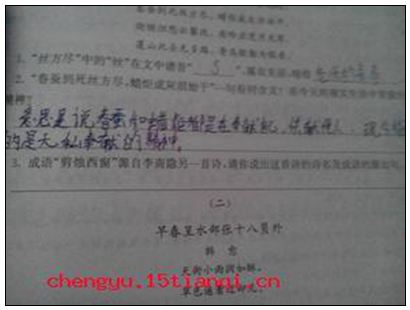 春蚕到死丝方尽，蜡炬成灰泪始干。
晓镜但愁云鬓改，夜吟应觉月光寒。
蓬山此去无多路，青鸟殷勤为探看。
1. “丝方尽”中的“丝”在文中谐音“
2. “春蚕到死丝方尽，蜡炬成灰泪始干”一句有何含义？在今天的现实生活中
精神？
意思是说春蚕和蜡炬都是在奉献
的是无私奉献的精神。
3. 成语“剪烛西窗”源自李商隐另一首诗，请你说出这首诗的诗名及成语的原句。
（二）
早春呈水部张十八员外
韩 愈
天街小雨润如酥，
草色遥看近却无。
chengyu.15tianqi.cn